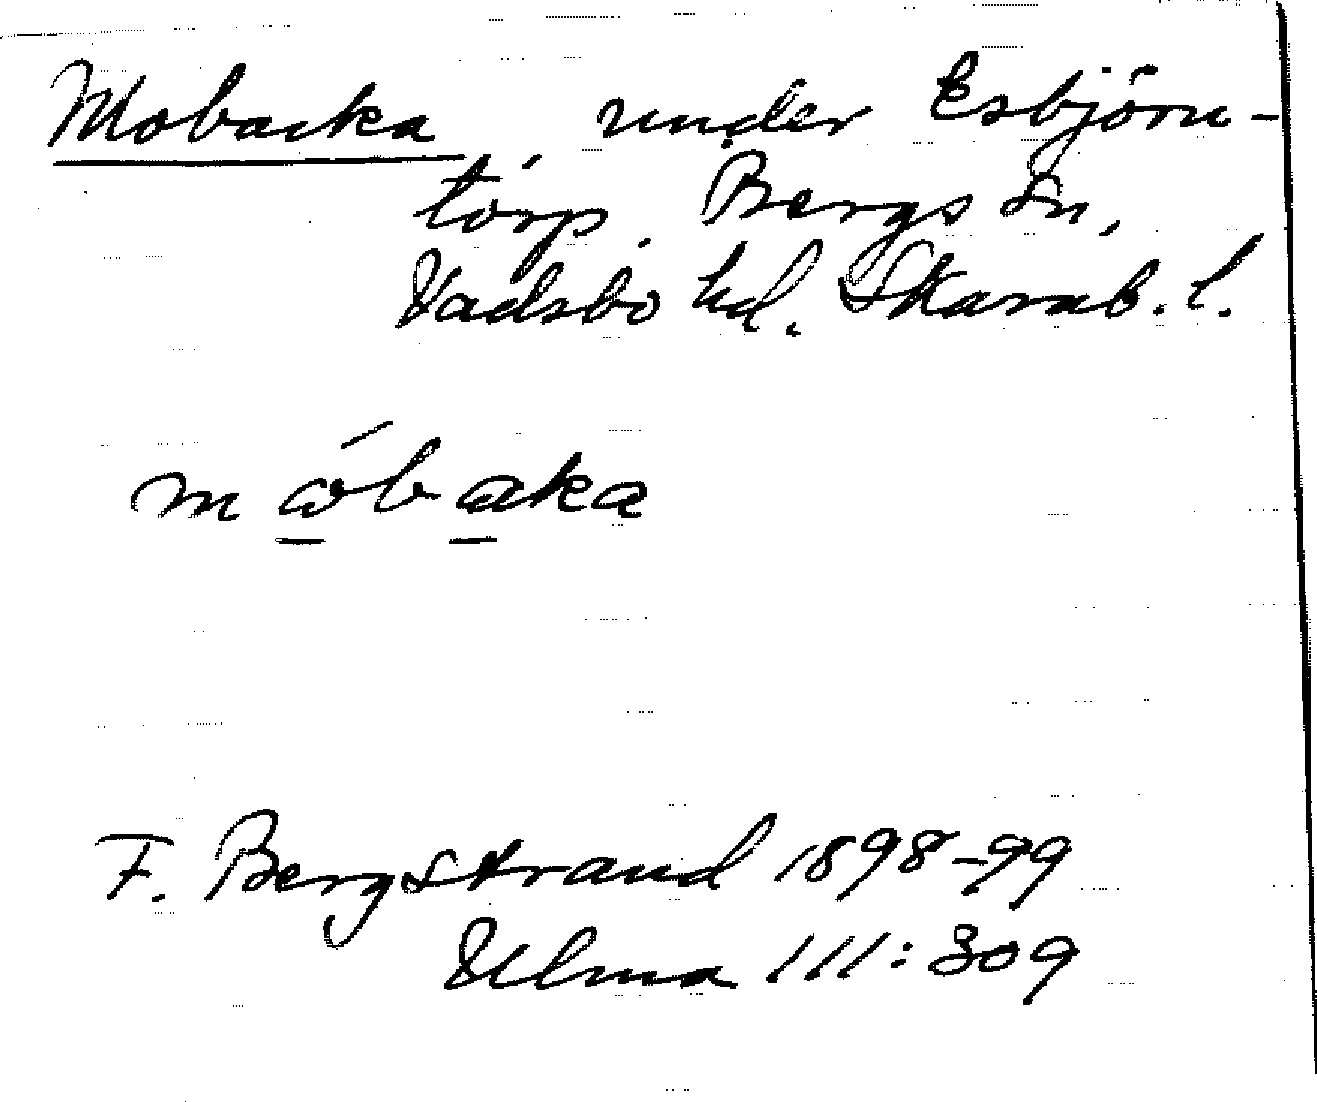 Mobacka under Esbjörn-
torp, Bergs sn,
Vadsbo hd. Skarab. l.
måbaka
F. Bergstrand 1898-99
Ulma 111:309